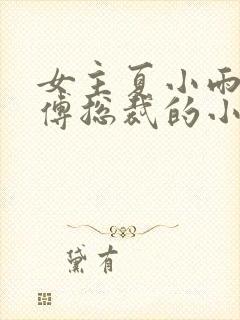 女主夏小雨
傅总裁的小
黛有